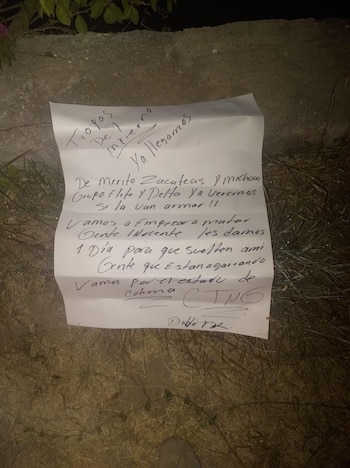 Tropas
Del
Ya llegamos
De Merito Zacatecas y
Grupo Elite y Delta Ya veremos
si la van armar !!
Vamos a Empezar a matar
Gente Inocente les damos
1 Dia para que suelten ami
Gente que Estan agarrando
Vamos por el estado de
Colima CJNG